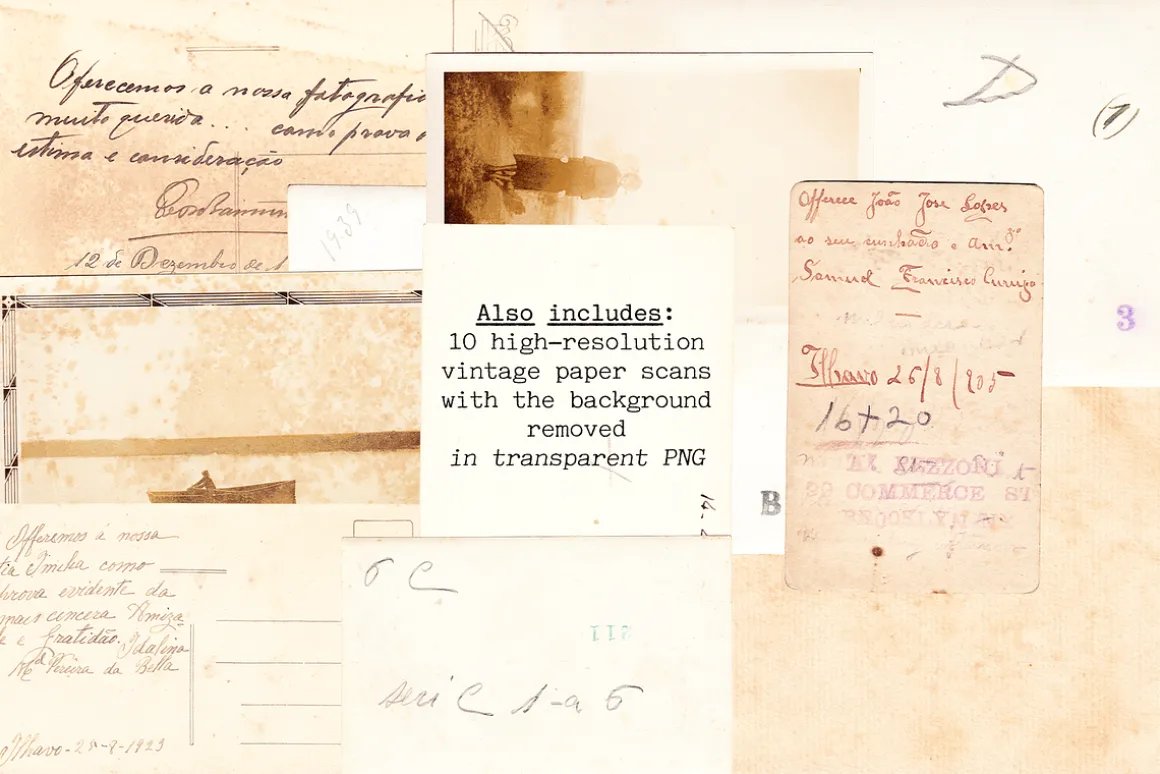 Oferecemos a nossa fotografia
muito querida... como prova
estima e consideração
12 de Dezembro de 1
1939
D
(7)
Offerece João Jose Lopes
ao seu cunhado e Am.º
Samuel Francisco
Ilhavo 26/8/905
16+20
COMMERCE ST
3
Also includes:
10 high-resolution
vintage paper scans
with the background
removed
in transparent PNG
B
Offeremos á nossa
tia como
prova evidente da
mais cincera Amiza
e e Gratidão. Idalina
Mª Pereira da Bella
Ilhavo-25-9-1923
6 C
211
seri C 1-a 6